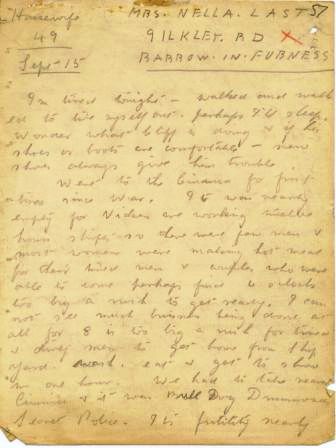 Housewife MRS. NELLA. LAST 51
49 9 ILKLEY. RD X
Sept-15 BARROW-IN-FURNESS
Im tired tonight - walked and walk
ed to tire myself out. perhaps I'll sleep.
Wonder what Cliff is doing & if his
shoes or boots are comfortable - new
shoes always give him trouble
Went to the Cinema for first
time since War. It was nearly
empty for Vickers are working twelve
hours shifts so there were few men &
most women were making hot meals
for their tired men & couples who were
able to come perhaps find 6 o'clock
too big a rush to get ready. I can
not see much business being done at
all for 8 is too big a rush for tired
& dirty men to get home from Ship
yard wash. eat & get to show
in one hour. We had to take near
& it was Bull Dog Drummond
Secret Police. Its futility nearly